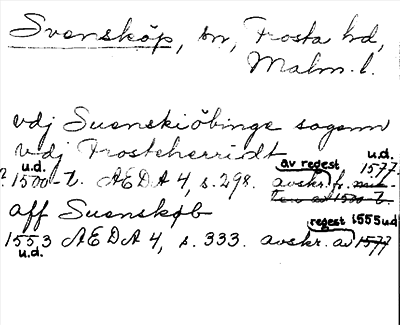 Svensköp, sn, Frosta hd,
Malm. l.
vdj Suenskiöbinge sogenn
vdj Frosteherridt
av regest u.d.
u.d. 1577
? 1500 t. ÆDA 4, s. 298. avskr. fr. mit-
ten av 1500 t.
aff Suenskøb
regest 1555 u.d.
1553 ÆDA 4, s. 333. avskr. av 1577
u.d.